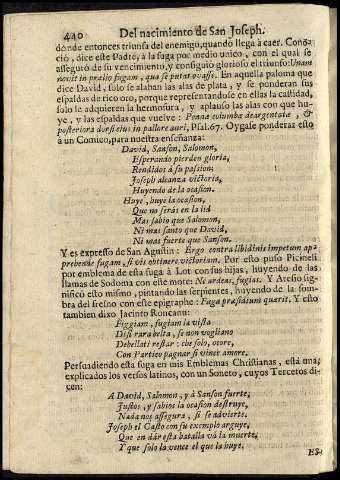 440 Del nacimiento de San Joseph.
donde entonces triunfa del enemigo, quando llega à caer. Cono-
ciò, dice este Padre, à la fuga por medio unico, con el qual se
asseguró de su vencimiento, y consiguio glorioso el triunfo: Unum
novit in prælio fugam, qua se putat evasse. En aquella paloma que
dice David, solo se alaban las alas de plata, y se ponderan sus
espaldas de rico oro, porque representandose en ellas la castidad,
solo le adquieren la hermosura, y aplauso las alas con que hu-
ye, y las espaldas que vuelve: Pennæ columbæ deargentatæ, &
posteriora dorsi eius in pallore auri, Psal. 67. Oygase ponderar esto
à un Comico, para nuestra enseñanza:
David, Sanson, Salomon,
Esperando pierden gloria,
Rendidos à su passion;
Joseph alcanza victoria,
Huyendo de la ocasion.
Huye, huye la ocasion,
Que no serás en la lid
Mas sabio que Salomon,
Ni mas santo que David,
Ni mas fuerte que Sanson.
Y es expresso de San Agustin: Ergo contra libidinis impetum ap-
prehende fugam, si vis obtinere victoriam. Por esto puso Picineli
por emblema de esta fuga à Lot con sus hijas, huyendo de las
llamas de Sodoma con este mote: Ne ardear, fugias. Y Aresio sig-
nificó esto mismo, pintando las serpientes, huyendo de la som-
bra del fresno con este epigraphe: Fuga præsidium quærit. Y esto
tambien dixo Jacinto Roncanu:
Figgiam, fugiam la vista
Di si rara belta, se non vogliamo
Debellati restar: che solo, otore,
Con Partico pugnar si vince amore.
Persuadiendo esta fuga en mis Emblemas Christianas, està una
explicados los versos latinos, con un Soneto, cuyos Tercetos di-
cen:
A David, Salomon, y à Sanson fuerte,
Justos, y sabios la ocasion destruye,
Nada nos assegura, si se advierte.
Joseph el Casto con su exemplo arguye,
Que en dár esta batalla và la muerte,
Y que solo la vence el que la huye.
ES-